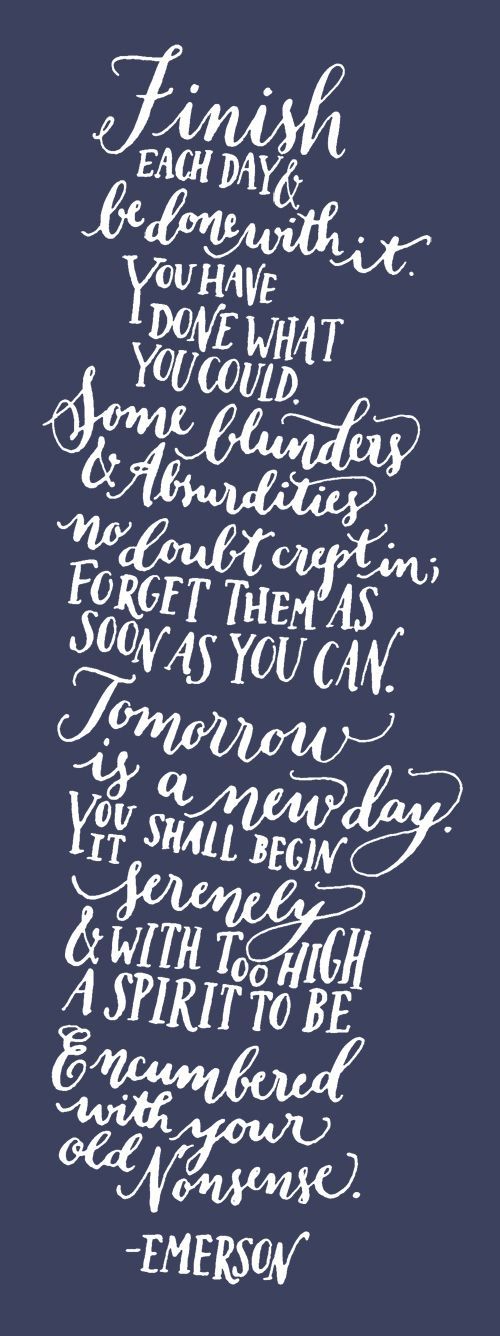 Finish
EACH DAY &
be done with it.
YOU HAVE
DONE WHAT
YOU COULD.
Some blunders
& Absurdities
no doubt crept in;
FORGET THEM AS
SOON AS YOU CAN.
Tomorrow
is a new day.
YOU SHALL BEGIN
IT
serenely
& WITH TOO HIGH
A SPIRIT TO BE
Encumbered
with your
old Nonsense.
-EMERSON